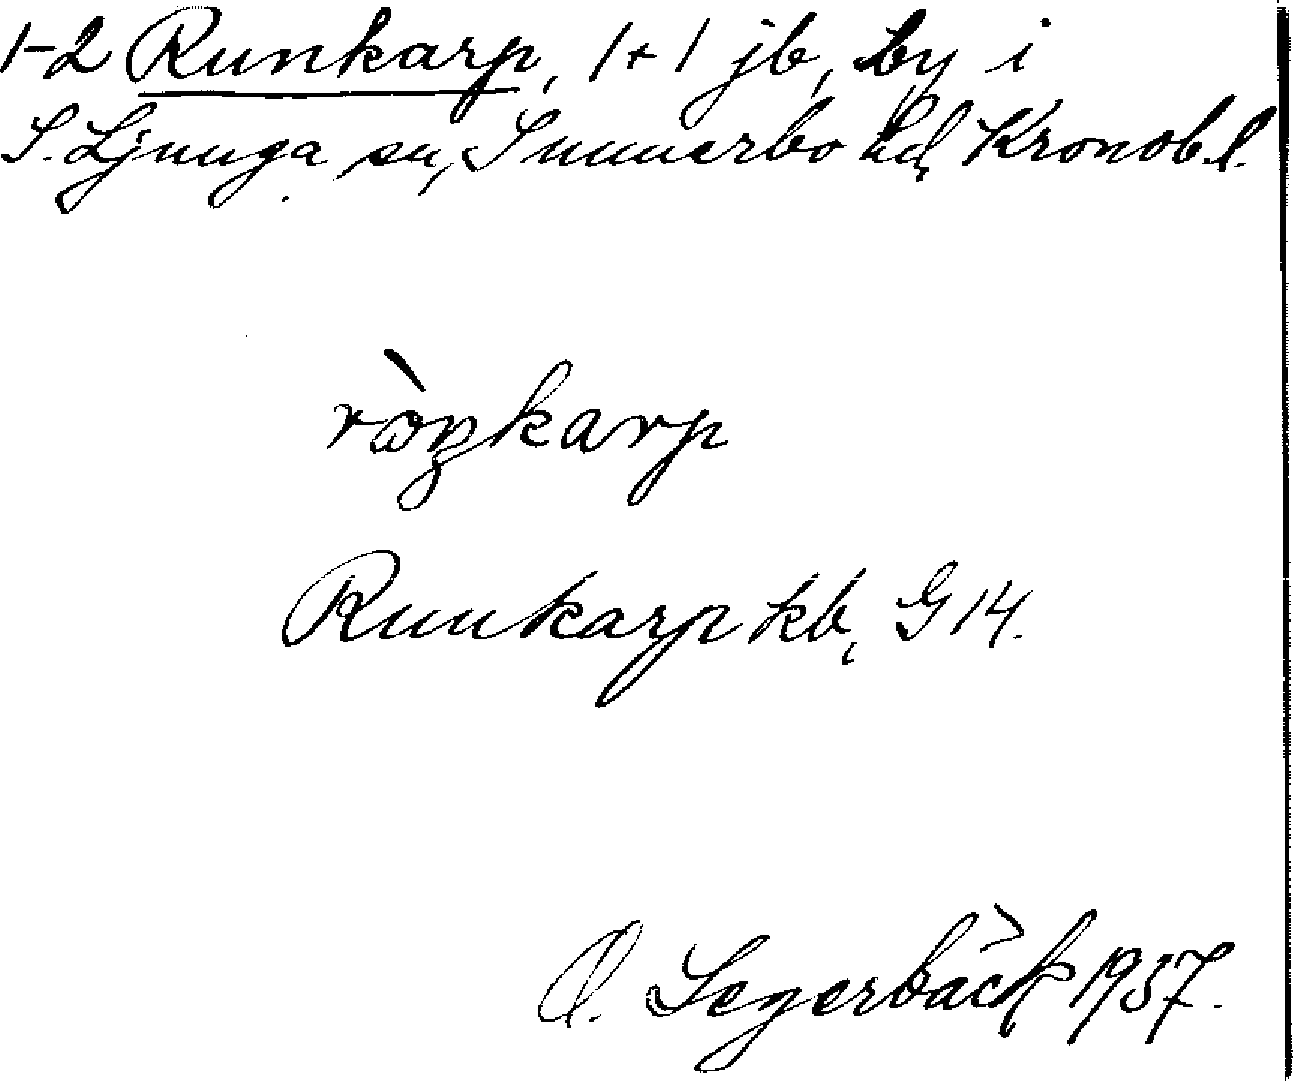 1-2 Runkarp, 1+1 jb, by i
S. Ljunga sn, Sunnerbo hd, Kronob. l.
ròŋkarp
Runkarp kb, G 14.
O. Segerbäck 1937.